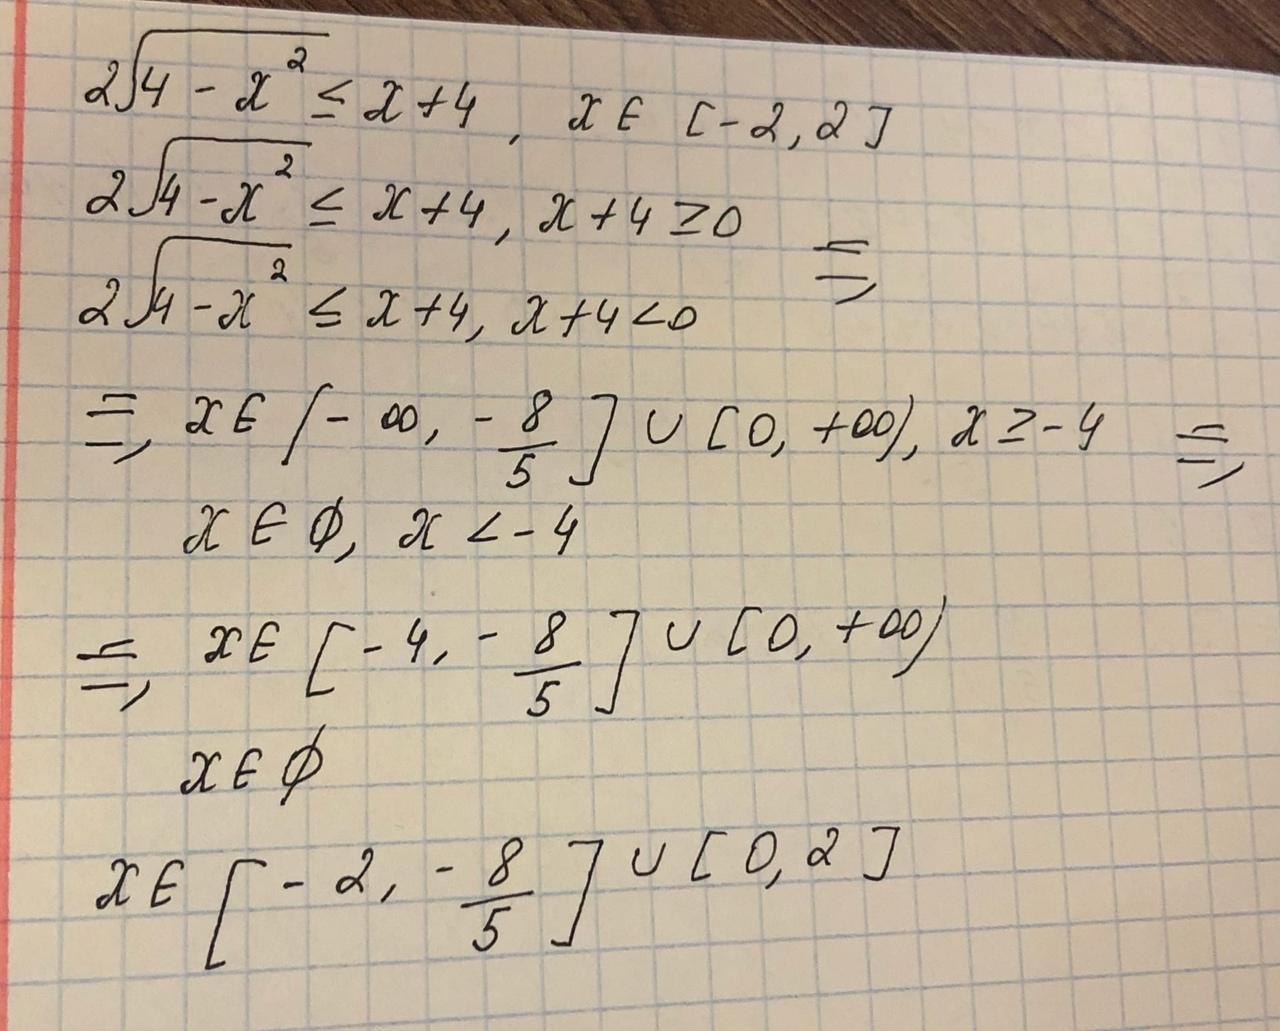 2√(4 - x²) ≤ x + 4, x ∈ [-2, 2]
2√(4 - x²) ≤ x + 4, x + 4 ≥ 0 =>
2√(4 - x²) ≤ x + 4, x + 4 < 0
=> x ∈ [-∞, -8/5] ∪ [0, +∞), x ≥ -4 =>
x ∈ ∅, x < -4
=> x ∈ [-4, -8/5] ∪ [0, +∞)
x ∈ ∅
x ∈ [-2, -8/5] ∪ [0, 2]